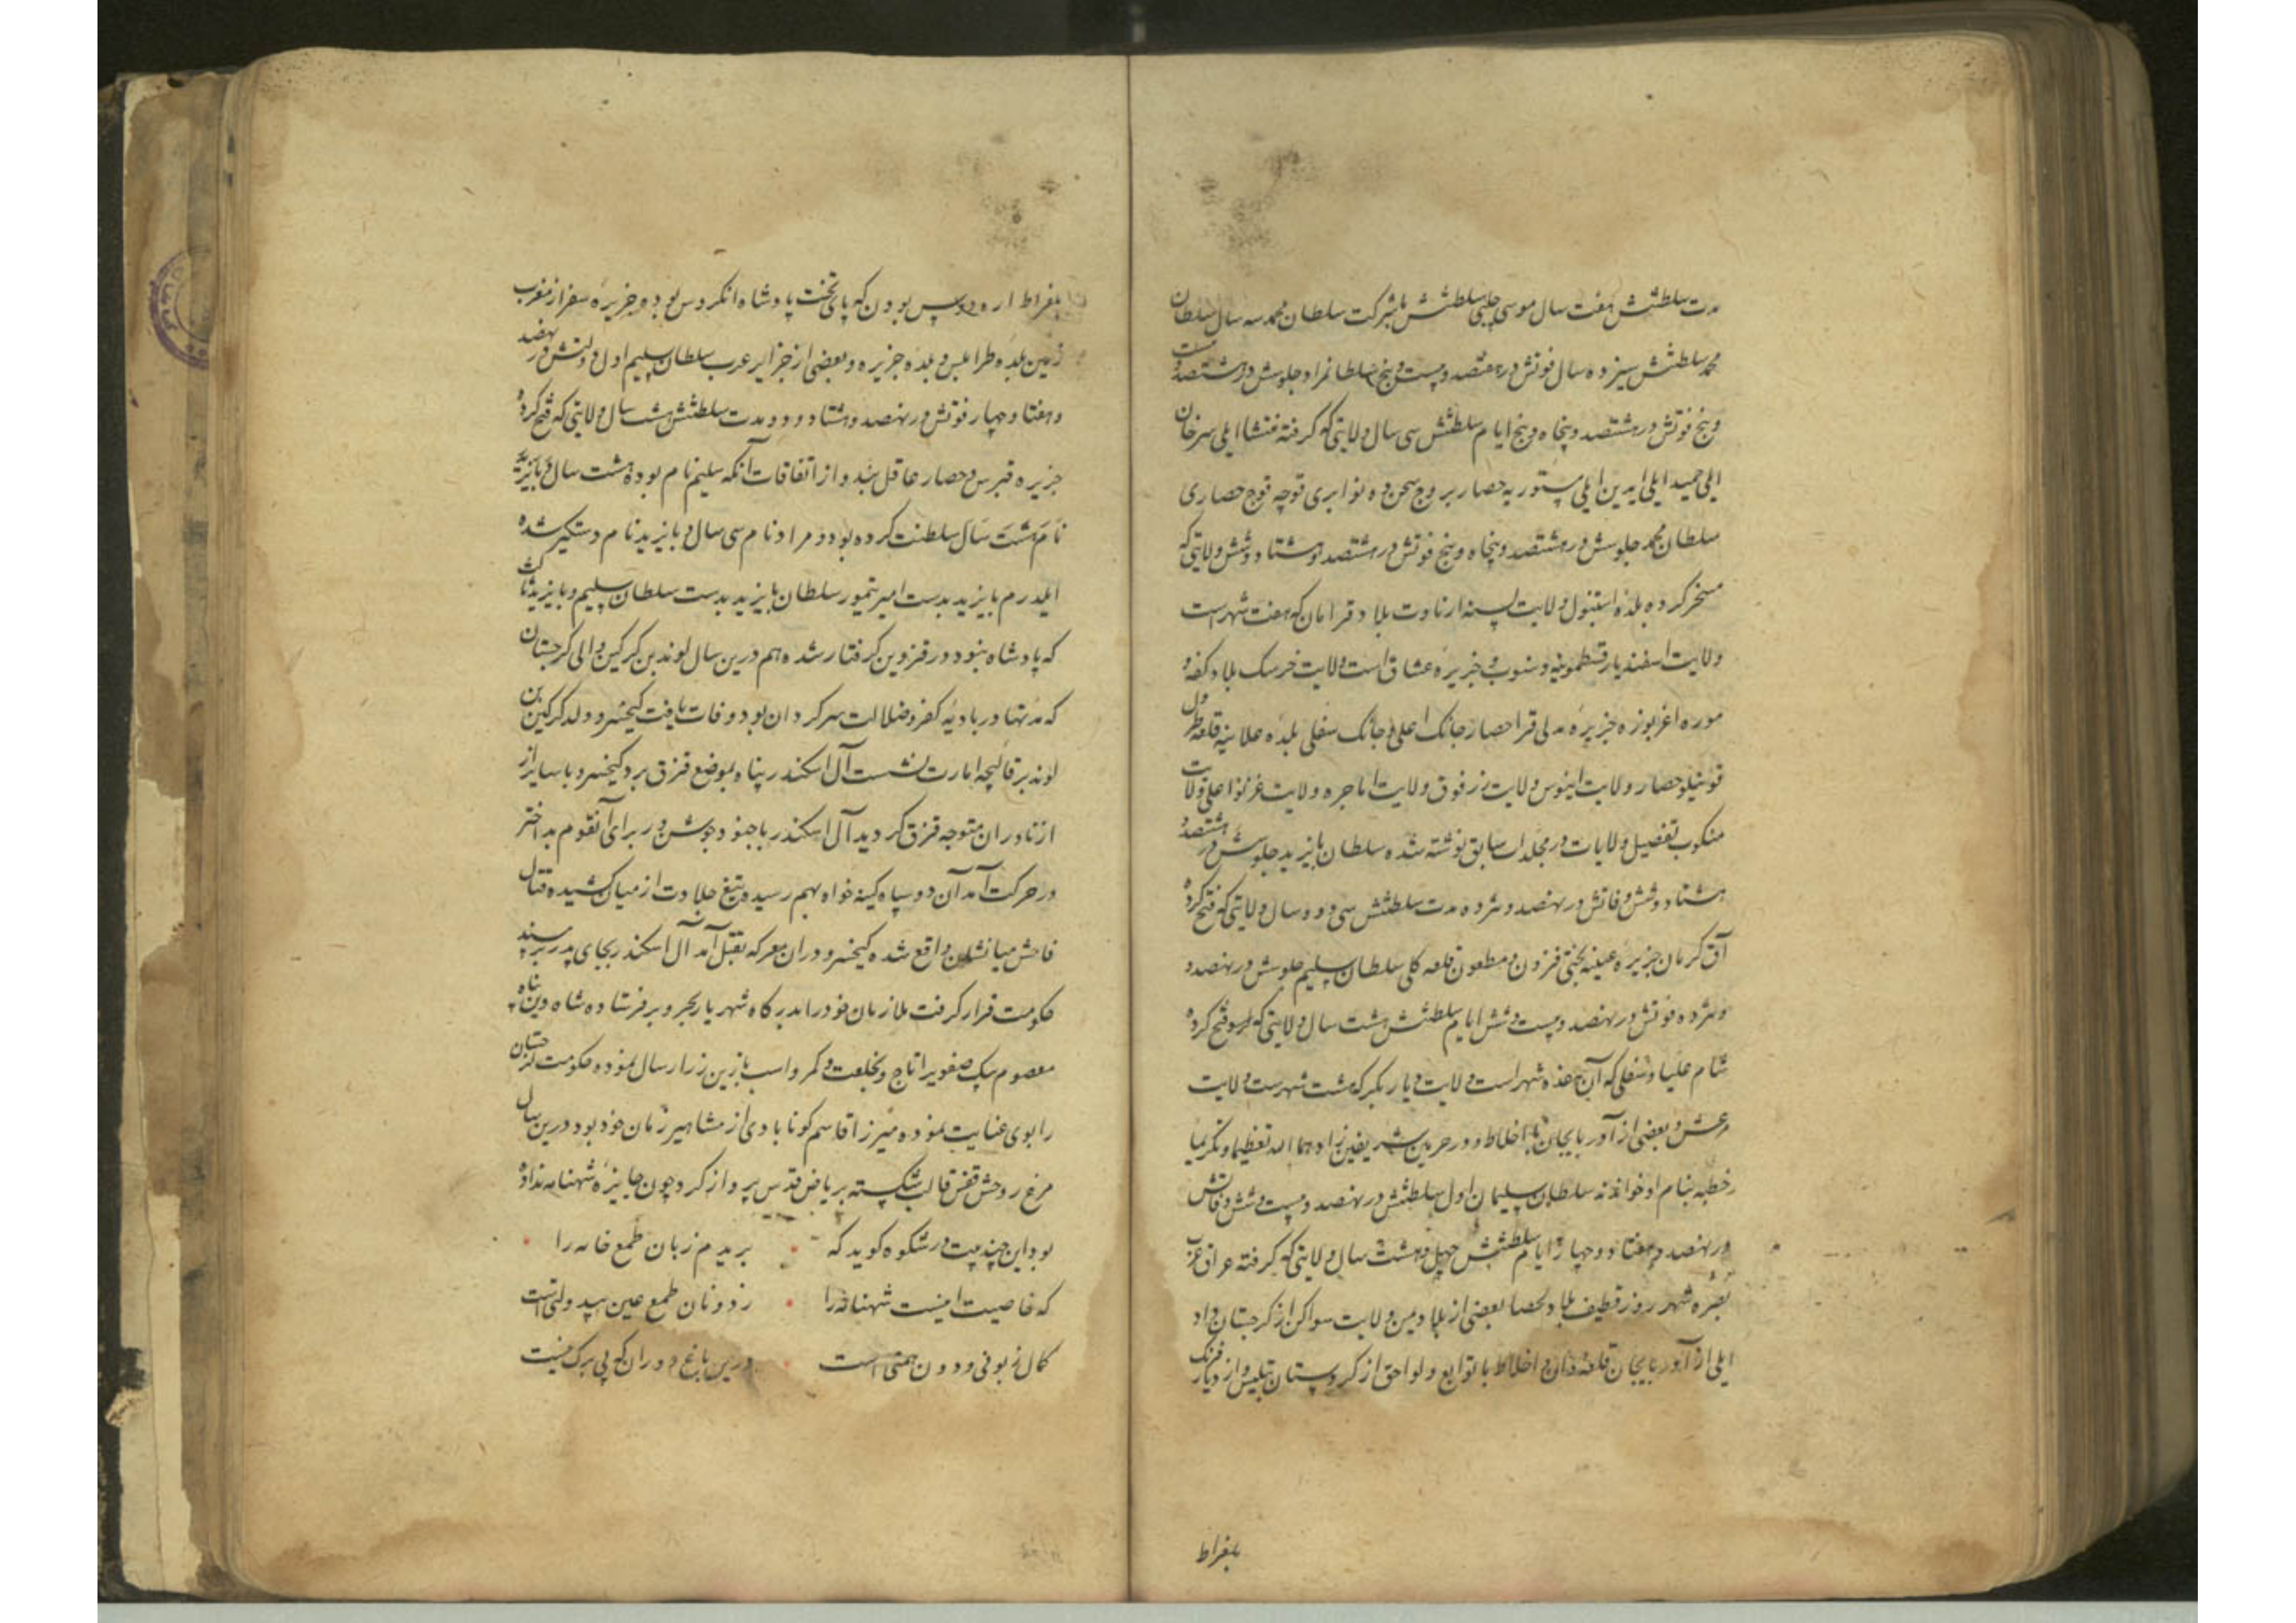 مدت سلطنتش هفت سال موسی چلبی سلطنتش بشرکت سلطان محمد سه سال سلطان
محمد سلطنتش سیزده سال فوتش در هفتصد و بیست و پنج سلطانمراد جلوسش در هشتصد و بیست
و پنج فوتش در هشتصد و پنجاه و پنج ایام سلطنتش سی سال ولایتی که گرفته منتشا ایلی سرخان
ایلی حمید ایلی ایدین ایلی حصار
سلطان محمد جلوسش در هشتصد و پنجاه و پنج فوتش در هشتصد و هشتاد و شش ولایتی که
مسخر کرده بلده استنبول ولایت بسنه ارناوت بلاد قرامان که هفت شهر است
ولایت اسفندیار قسطمونیه و سنوب و جزیره عشاق است ولایت خرسک بلاد کفه و
موره اغربوزه جزیره مدلی قراحصار جانک اعلی و جانک سفلی بلده علائیه قلعه
قوینیلو حصار ولایت اینوس ولایت ولایت اماجره ولایت
منکوب تفصیل ولایات در مجلدات سابق نوشته شده سلطان بایزید جلوسش در هشتصد و
هشتاد و شش وفاتش در نهصد و هژده مدت سلطنتش سی و دو سال ولایتی که فتح کرده
آق کرمان جزیره قلعه کلی سلطان سلیم جلوسش در نهصد و
هژده فوتش در نهصد و بیست و شش ایام سلطنتش هشت سال ولایتی که او فتح کرده
شام علیا و سفلی که آن هفده شهر است ولایت دیار بکر که هشت شهرست ولایت
مرعش و بعضی از آذربایجان تا اخلاط و در حرمین شریفین زادهما الله تعظیما و تکریما
خطبه بنام او خواندند سلطان سلیمان اول سلطنتش در نهصد و بیست و شش وفاتش
در نهصد و هفتاد و چهار ایام سلطنتش چهل و هشت سال ولایتی که گرفته عراق عرب
بصره شهر روز قطیف بلاد لحصا بعضی از بلاد یمن ولایت سواکن از کرجستان داد
ایلی از آذربایجان قلعه وان و اخلاط با توابع و لواحق از کردستان تبلیس و از دیار فرنگ
بلغراط
بلغراط اردوس بودن که پای تخت پادشاه انکروس بوده و جزیره سفز از مغرب
زمین بلده طرابلس و بلده جزیره و بعضی از جزایر عرب سلطان سلیم اول دولتش در نهصد
و هفتاد و چهار فوتش در نهصد و هشتاد و دو مدت سلطنتش هشت سال ولایتی که فتح کرده
جزیره قبرس و حصار عاقل بند و از اتفاقات آنکه سلیم نام بوده هشت سال و بایزید
نام هشت سال سلطنت کرده بودو مراد نام سی سال و بایزید نام دستگیر شده
ایلدرم بایزید بدست امیر تیمور سلطان بایزید بدست سلطان سلیم و بایزید ثالث
که پادشاه نبود در قزوین گرفتار شده هم درین سال لوند بن کرکین والی کرجستان
که مدتها در بادیه کفر و ضلالت سرگردان بود وفات یافت کیخسرو ولد کرکین بن
لوند بر قالیچه امارت نشست آل اسکندر پناه بموضع قزق برد کیخسرو با سایر از
ازناوران متوجه قزق گردید آل اسکندر با جنود و جوشن در برای آنقوم بداختر
در حرکت آمد آن دو سپاه کینه خواه بهم رسیده تیغ جلادت از میان کشیده قتال
فاحش میانشان واقع شده کیخسرو در ان معرکه بقتل آمد آل اسکندر بجای پدر بر مسند
حکومت قرار گرفت ملازمان خود را بدرگاه شهریار بحر و بر فرستاده شاه دین پناه
معصوم بیک صفوی را با تاج و خلعت و کمر و اسب با زین زر ارسال نموده حکومت کرجستان
را بوی عنایت نموده میرزا قاسم گونابادی از مشاهیر زمان خود بود درین سال
مرغ روحش قفس قالب شکسته بریاض قدس پرواز کرد چون جایزه شهنامه نداده
بود این چند بیت در شکوه گوید که بریدم زبان طمع خامه را
که خاصیت اینست شهنامه را ز دونان طمع عین بیدولتی است
کمال زبونی و دون همتی است درین باغ دوران کج پی برگ نیست